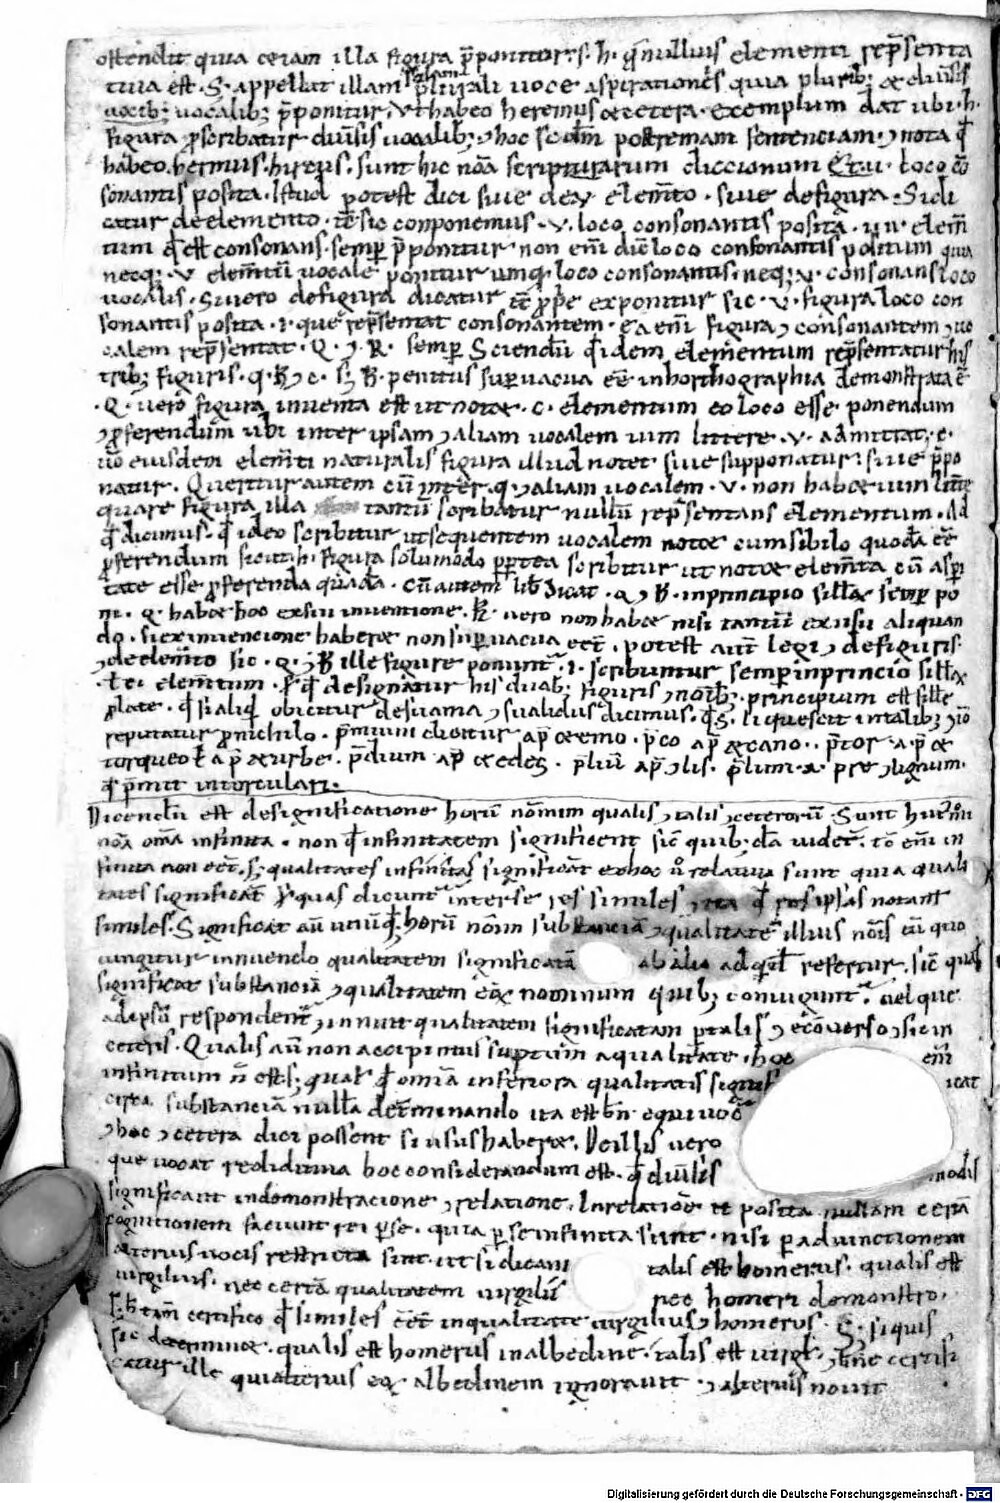 ostendit quia ceram illa figura p̄ponitur .s. h. q̄ nullius elementi rep̄senta
tiua est. S. appellat illam plurali uoce aspirationes quia plurib; & diuīsis
uocib; uocalib; p̄ponitur. Vt habeo heremus & cetera. exemplum dat ubi .h.
figura p̄scribatur diuīsis uocalib; ⁊ hoc sc̄dm̄ postremam sentenciam. ⁊ nota q̄
habeo. hermus. hircus. sunt hic nōa scripturarum diccionum Et .u. loco cō
sonantis posita. Istud potest dici siue de elem̄to. siue de figura. Si di
catur de elemento. sic componemus .V. loco consonantis posita. elem̄
tum q̄ est consonans. semp p̄ponitur non em̄ loco consonantis positum quia
neq; .V. elem̄tū uocale ponitur umq̄ loco consonantis. neq; .V. consonans loco
uocalis. Si uero de figura dicatur p̄p̄e exponitur sic .V. figura loco con
sonantis posita .i. que rep̄sentat consonantem. em̄ figura ⁊ consonantem ⁊ uo
calem rep̄sentat. Q. ⁊ K. semp Sciendū q̄ idem elementum rep̄sentatur his
trib; figuris .q. K ⁊ c. s; K. penitus supuacua ee in horthographia demonstrata ē
.Q. uero figura inuenta est ut notet .c. elementum eo loco esse ponendum
⁊ p̄ferendum ubi inter ipsam ⁊ aliam uocalem uim littere .V. admittat .c.
uō eiusdem elem̄ti naturalis figura illud notet siue supponatur siue p̄po
natur. Queritur autem cū inter .q. ⁊ aliam uocalem .V. non habeat uim litt̄e
quare figura illa tantū scribatur nullū rep̄sentans elementum. Ad
q̄ dicimus. q̄ ideo scribitur ut sequentem uocalem notet cum sibilo quodā eē
p̄ferendum sicut .h. figura solummodo ppterea scribitur ut notet elem̄ta cū aspi
tate esse p̄ferenda quādā. Cū autem lib̄ dicat .Q. ⁊ K. in principio sillabe semp po
ni .Q. habet hoc ex sui inuentione. K. uero non habet nisi tantū ex usu aliquan
do. si ex inuencione haberet non supuacua eet. potest aut̄ legi ⁊ de figuris.
⁊ de elem̄to sic .Q. ⁊ K ille figure ponunt̄ .i. scribuntur semp in princio sill̄e
elem̄tum. q̄ designatur his duab; figuris ⁊ noīb;. principium est sill̄e
plate. q̄ si aliq̄ obicitur de suama ⁊ sualidus dicimus. q̄ .S. liquescit in talib; ⁊ iō
reputatur p̄ nichilo. p̄mium dicitur ap̄ & emo. p̄co ap̄ & cano. p̄tor .a. p̄ &
torqueo ł a p̄ & urbe. p̄dium ap̄ & edes. p̄liū ap̄ ⁊ lis. p̄lum .a. pre ⁊ lignum.
q̄ p̄mit in torculari.
Dicendū est de significatione horū nōinum qualis ⁊ talis ⁊ ceterorū. Sunt
nōa om̄a infinita. non q̄ infinitatem significent sic̄ quib; dā uidet̄. em̄ in
finita non eet̄. S; qualitates infinitas significāt relatiua sunt quia quali
tates significāt p̄ quas dicunt̄ inter se res similes ⁊ ita q̄ res ipsas notant
similes. Significat aū unū q̄; horū nōin̄ substanciā ⁊ qualitatē illius nōis cū quo
iungitur innuendo qualitatem significatā ab alio ad q̄d refertur. sic̄ qualis
significat substanciā ⁊ qualitatem eoꝝ nominum quib; coniugunt̄. uel que
ad ipsū respondent̄ ⁊ innuit qualitatem significatam p talis ⁊ e cōuerso ⁊ sic in
ceteris. Qualis aū non accipimus suptum a qualitate. hoc em̄
infinitum n̄ est. s; quale q̄ omīa inferiora qualitatis significat
circa substanciā nullā det̄minando ita est bn̄ equiuocū
⁊ hoc ⁊ cetera dici possent si usus haberet. De illis uero
que uocat redditiua hoc considerandum est. q̄ diuīsis modis
significant in demonstracione ⁊ relatione. In relatiōe posita nullam certā
cognitionem faciunt rei p se. quia p se infinita sunt. nisi p adiunctionem
alterius uocis restricta sint. ut si dicam talis est homerus. qualis est
uirgilius. nec certā qualitatem uirgilii nec homeri demonstro.
tam̄ certifico q̄ similes eet̄ in qualitate uirgilius ⁊ homerus. S. si quis
sic determinet. qualis est homerus in albedine. talis est uirgł. ⁊ bn̄e certifi
catur ille qui alterius eoꝝ albedinem ignorauit. ⁊ alterius nouit
Digitalisierung gefördert durch die Deutsche Forschungsgemeinschaft - DFG